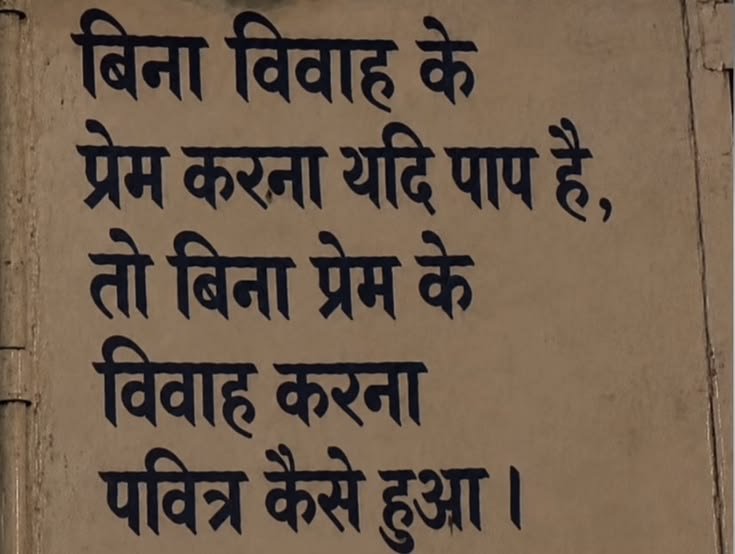 बिना विवाह के
प्रेम करना यदि पाप है,
तो बिना प्रेम के
विवाह करना
पवित्र कैसे हुआ।